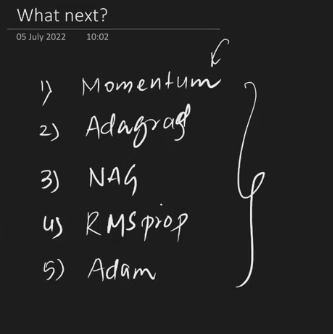 What next?
05 July 2022 10:02
1) Momentum
2) Adagrad
3) NAG
4) RMSprop
5) Adam